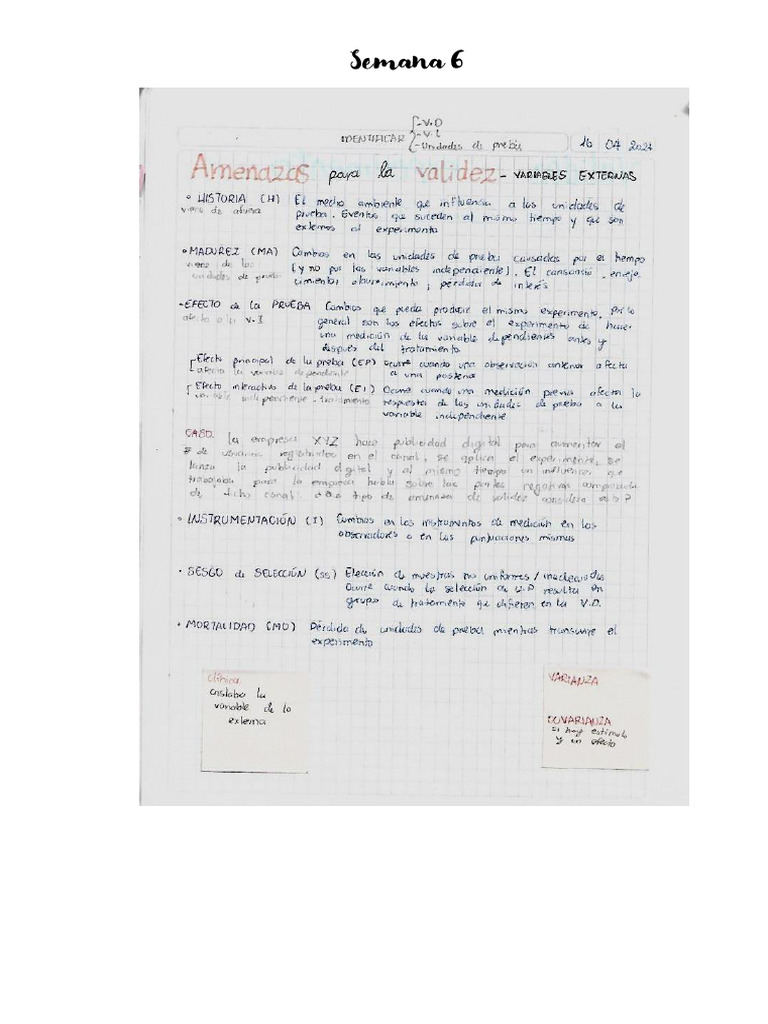 Semana 6
- V.D
IDENTIFICAR - V.I
- Unidades de prueba
16 04 2024
Amenazas para la validez - VARIABLES EXTERNAS
• HISTORIA (H) El medio ambiente que influencia a las unidades de
viene de afuera prueba. Eventos que suceden al mismo tiempo y que son
externos al experimento
• MADUREZ (MA) Cambios en las unidades de prueba causadas por el tiempo
viene de las (y no por las variables independiente). El cansancio, enveje
unidades de prueba cimiento, aburrimiento, pérdida de interés
- EFECTO de la PRUEBA Cambios que pueda producir el mismo experimento. Por lo
afecta a la V.I general son los efectos sobre el experimento de hacer
una medición de la variable dependientes antes y
después del tratamiento
Efecto principal de la prueba (EP) Ocurre cuando una observación anterior afecta
afecta la variable dependiente a una posterior
Efecto interactivo de la prueba (EI) Ocurre cuando una medición previa afecta la
variable independiente - tratamiento respuesta de las unidades de prueba a la
variable independiente
CASO. la empresa XYZ hace publicidad digital para aumentar el
# de usuarios registrados en el canal, se aplica el experimento, se
lanza la publicidad digital y al mismo tiempo un influencer que
trabajaba para la empresa habla sobre las partes negativas
de dicho canal. tipo de amenaza de validez considera esto?
• INSTRUMENTACIÓN (I) Cambios en los instrumentos de medición en los
observadores o en las puntuaciones mismas
• SESGO de SELECCIÓN (SS) Elección de muestras no uniformes / inadecuadas
Ocurre cuando la selección de U.P resulta en
grupos de tratamiento que difieren en la V.D.
• MORTALIDAD (MO) Pérdida de unidades de prueba mientras transcurre el
experimento
clínica
aislaba la
variable de lo
externa
VARIANZA
COVARIANZA
si hay estímulo
y un efecto